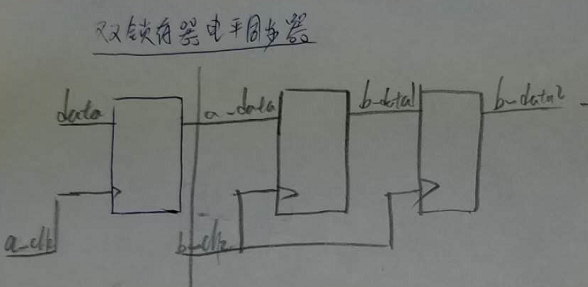 双锁存器电平同步器
data a-data b-data1 b-data2
a-clk b-clk